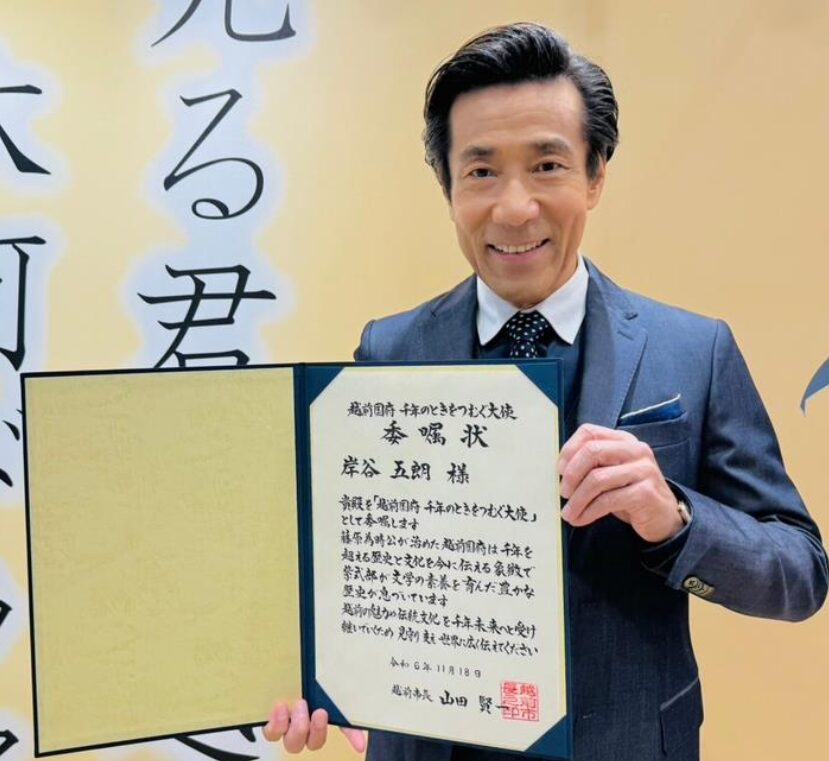 見る君
越前国府 千年のときをつむぐ大使
委嘱状
岸谷 五朗 様
貴殿を「越前国府 千年のときをつむぐ大使」
として委嘱します
藤原為時公が治めた越前国府は千年を
超える歴史と文化を今に伝える象徴で
紫式部が文学の素養を育んだ豊かな
歴史が息づいています
越前の魅力や伝統文化を千年未来へと受け
継いでいくため 見守り 支え 世界に広く伝えてください
令和6年11月18日
越前市長 山田 賢一